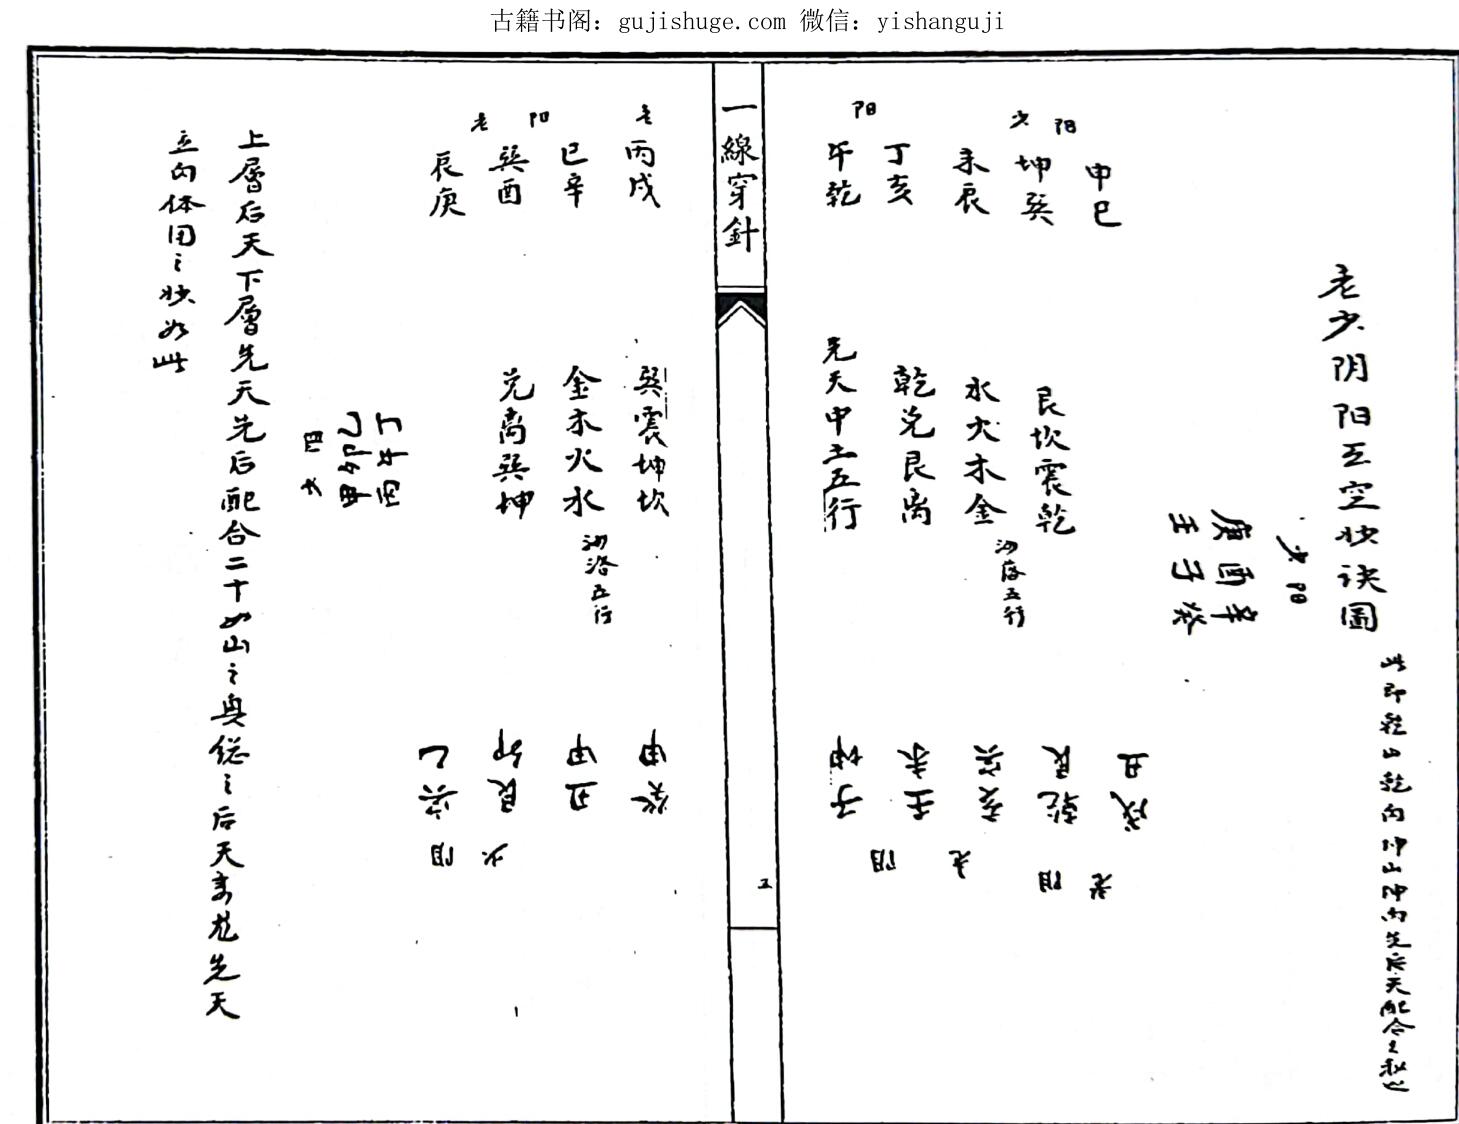 古籍书阁：gujishuge.com 微信：yishanguji
老少阴阳互空状诀圖
此即乾山乾向坤山坤向先后天配合之秘也
少阳
庚酉辛
壬子癸
申巳
少阳
坤巽
未辰
丁亥
阳
午乾
艮坎震乾
水火木金
洛五行
乾兑艮离
先天甲工五行
丑戌
艮乾
寅亥
未壬
坤子
老阴
老阴
一線穿針
五
老
丙戌
巳辛
老阳
巽酉
辰庚
巽震坤坎
金木火水
洛五行
兑离巽坤
丁午丙
乙卯甲
少阴
甲癸
甲丑
卯艮
乙寅
少阴
上層后天下層先天先后配合二十四山之奥总之后天来龙先天
立向体用之状如此